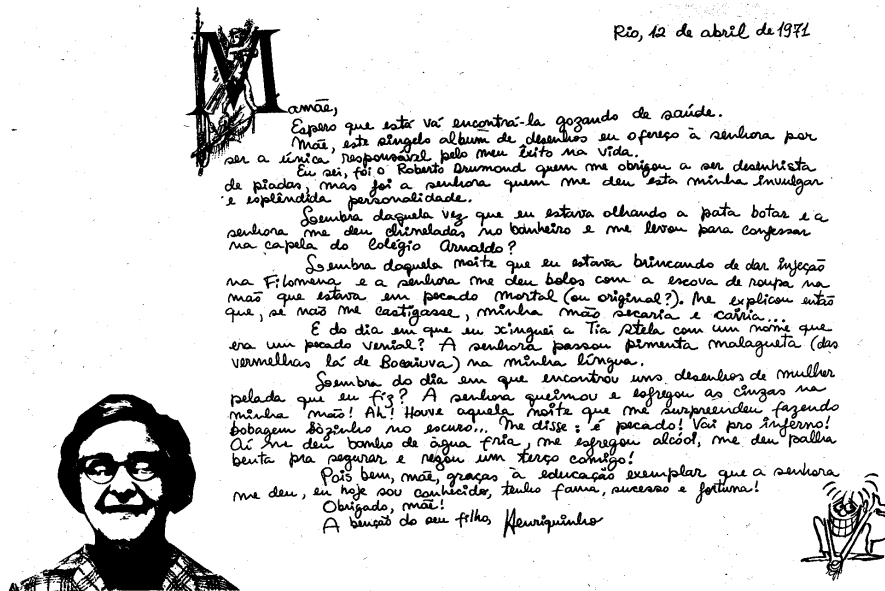 Rio, 12 de abril de 1971
Mamãe,
Espero que esta vá encontrá-la gozando de saúde.
Mãe, este singelo album de desenhos eu ofereço à senhora por
ser a única responsável pelo meu êxito na vida.
Eu sei, foi o Roberto Drumond quem me obrigou a ser desenhista
de piadas, mas foi a senhora quem me deu esta minha invulgar
e esplêndida personalidade.
Lembra daquela vez que eu estava olhando a pata botar e a
senhora me deu chineladas no banheiro e me levou para confessar
na capela do Colégio Arnaldo?
Lembra daquela noite que eu estava brincando de dar injeção
na Filomena e a senhora me deu bolos com a escova de roupa na
mão que estava em pecado mortal (ou original?). Me explicou então
que, se não me castigasse, minha mão secaria e cairia...
E do dia em que eu xinguei a Tia Stela com um nome que
era um pecado venial? A senhora passou pimenta malagueta (das
vermelhas lá de Bocaiuva) na minha língua.
Lembra do dia em que encontrou uns desenhos de mulher
pelada que eu fiz? A senhora queimou e esfregou as cinzas na
minha mão! Ah! Houve aquela noite que me surpreendeu fazendo
bobagem sòzinho no escuro... Me disse: é pecado! Vai pro inferno!
Aí me deu banho de água fria, me esfregou alcóol, me deu palha
benta pra segurar e rezou um terço comigo!
Pois bem, mãe, graças à educação exemplar que a senhora
me deu, eu hoje sou conhecido, tenho fama, sucesso e fortuna!
Obrigado, mãe!
A benção do seu filho, Henriquinho